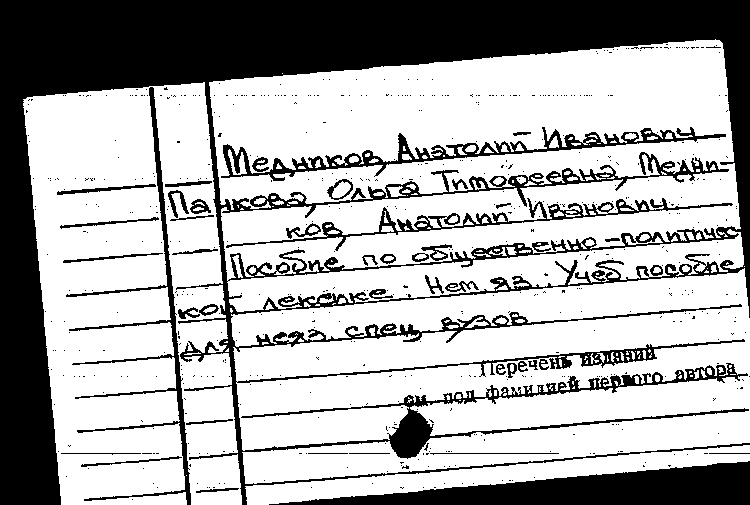 Медников, Анатолий Иванович
Панкова, Ольга Тимофеевна, Медни-
ков, Анатолий Иванович.
Пособие по общественно-политичес-
кой лексике: Нем. яз.: Учеб. пособие
для неяз. спец. вузов
Перечень изданий
см. под фамилией первого автора